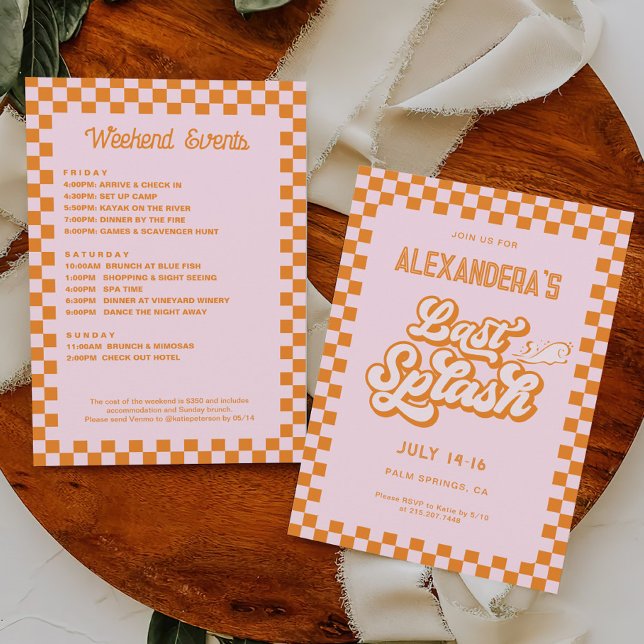 Weekend Events
FRIDAY
4:00PM: ARRIVE & CHECK IN
4:30PM: SET UP CAMP
5:50PM: KAYAK ON THE RIVER
7:00PM: DINNER BY THE FIRE
8:00PM: GAMES & SCAVENGER HUNT
SATURDAY
10:00AM BRUNCH AT BLUE FISH
1:00PM SHOPPING & SIGHT SEEING
4:00PM SPA TIME
6:30PM DINNER AT VINEYARD WINERY
9:00PM DANCE THE NIGHT AWAY
SUNDAY
11:00AM BRUNCH & MIMOSAS
2:00PM CHECK OUT HOTEL
The cost of the weekend is $350 and includes
accommodation and Sunday brunch.
Please send Venmo to @katiepeterson by 05/14
JOIN US FOR
ALEXANDERA'S
Last
Splash
JULY 14-16
PALM SPRINGS, CA
Please RSVP to Katie by 5/10
at 215.207.7448